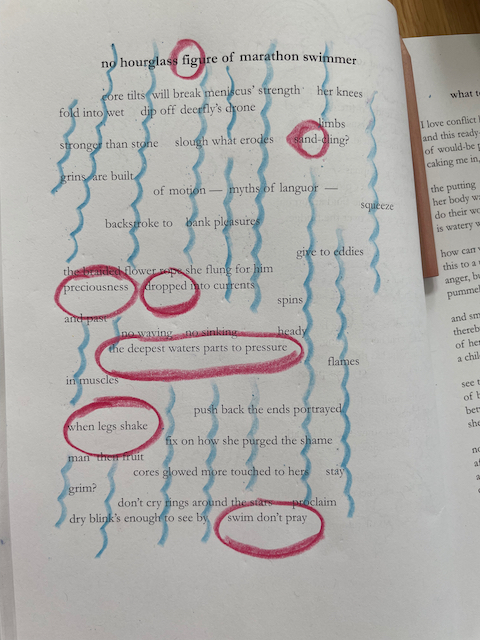 no hourglass figure of marathon swimmer
core tilts will break meniscus' strength her knees
fold into wet dip off deerfly's drone
limbs
stronger than stone slough what erodes sand-cling?
grins are built
of motion — myths of languor —
squeeze
backstroke to bank pleasures
give to eddies
the braided flower rope she flung for him
preciousness dropped into currents
spins
and past
no waving no sinking heady
the deepest waters parts to pressure
flames
in muscles
push back the ends portrayed
when legs shake
fix on how she purged the shame
man then fruit
cores glowed more touched to hers stay
grim?
don't cry rings around the stars proclaim
dry blink's enough to see by swim don't pray
what to
I love conflict
and this ready-
of would-be p
caking me in,
the putting
her body wa
do their wo
is watery w
how can
this to a
anger, bu
pummel
and sm
thereb
of her
a chil
see t
of b
bet
she